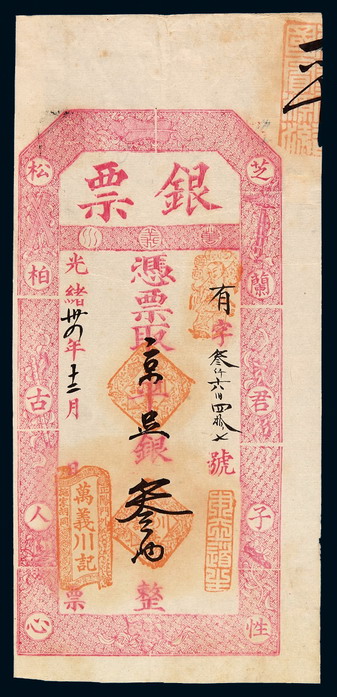 銀票
芝蘭君子性
松柏古人心
萬義川
有字叁仟六百四拾七號
憑票取京平足銀叁两整
光緒卅四年十二月 日票
萬義川記